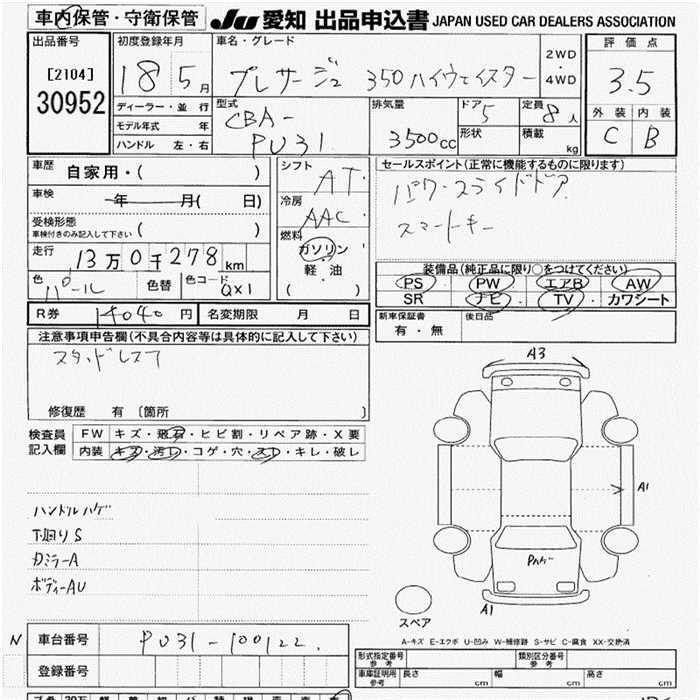 車内保管・守衛保管 JU 愛知 出品申込書 JAPAN USED CAR DEALERS ASSOCIATION
出品番号 初度登録年月 車名・グレード 2WD・4WD 評価点
[2104] 18 5月 プレサージュ 350ハイウェイスター 3.5
30952
ディーラー・並行 型式 CBA-PU31 排気量 3500cc ドア 5 定員 8人 外装 内装
モデル年式 年 形状 積載 kg C B
ハンドル 左・右
車歴 自家用・( ) シフト AT セールスポイント(正常に機能するものに限ります)
車検 年 月( 日) 冷房 AAC パワースライドドア
受検形態 スマートキー
車検付きのみ記入して下さい ( ) 燃料 ガソリン・軽油・( )
走行 13万0千278km 装備品(純正品に限り○をつけてください)
色 パール 色替 色コード QX1 PS PW エアB AW
SR ナビ TV カワシート
R券 14040円 名変期限 月 日 新車保証書 有・無 後日品
注意事項申告欄(不具合内容等は具体的に記入して下さい)
スタッドレス
修復歴 有〔箇所 〕
検査員記入欄 FW キズ・飛石・ヒビ割・リペア跡・X要
内装 キズ・汚レ・コゲ・穴・スレ・キレ・破レ
A3
A1
ハンドルハゲ
下廻りS
カミラーA
ボディーAU
Pハゲ
A1
スペア
A-キズ E-エクボ U-凹み W-補修跡 S-サビ C-腐食 XX-交換済
N 車台番号 PU31-100122
登録番号
形式指定番号 参考 類別区分番号 参考
車庫証明用 参考 長さ cm 幅 cm 高さ cm